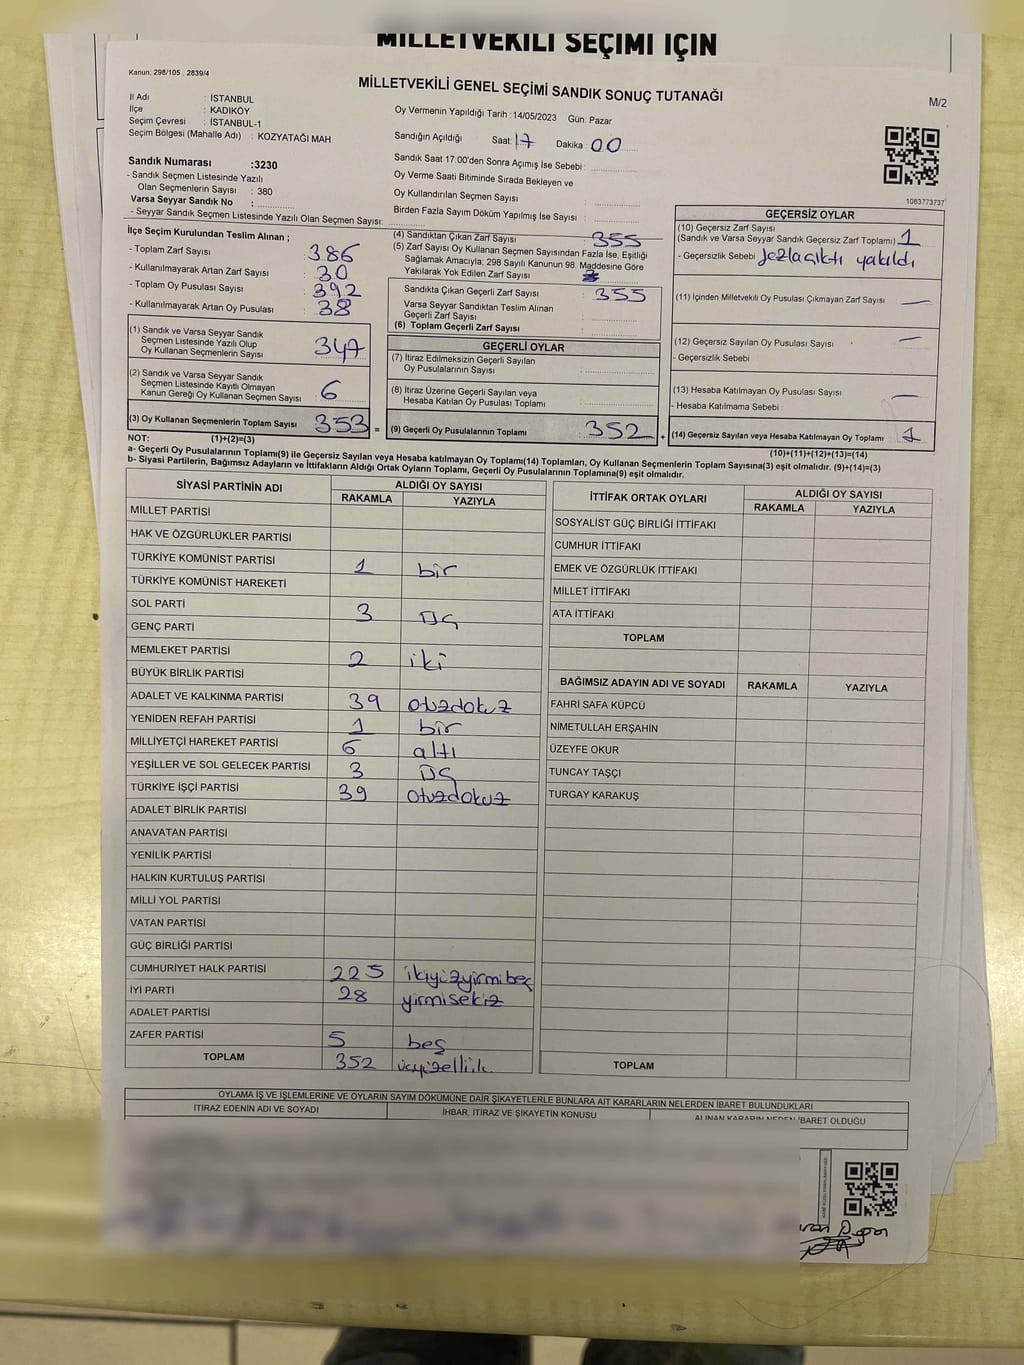 MİLLETVEKİLİ SEÇİMİ İÇİN
Kanun: 298/105 , 2839/4
MİLLETVEKİLİ GENEL SEÇİMİ SANDIK SONUÇ TUTANAĞI
M/2
İl Adı : İSTANBUL
İlçe : KADIKÖY
Seçim Çevresi : İSTANBUL-1
Seçim Bölgesi (Mahalle Adı) : KOZYATAĞI MAH
Oy Vermenin Yapıldığı Tarih :14/05/2023 Gün: Pazar
Sandığın Açıldığı Saat: 17 Dakika: 00
Sandık Saat 17:00'den Sonra Açımış İse Sebebi :
Oy Verme Saati Bitiminde Sırada Bekleyen ve
Oy Kullandırılan Seçmen Sayısı :
Birden Fazla Sayım Döküm Yapılmış İse Sayısı :
Sandık Numarası :3230
- Sandık Seçmen Listesinde Yazılı
Olan Seçmenlerin Sayısı : 380
Varsa Seyyar Sandık No :
- Seyyar Sandık Seçmen Listesinde Yazılı Olan Seçmen Sayısı:
1083773737
İlçe Seçim Kurulundan Teslim Alınan ;
- Toplam Zarf Sayısı : 386
- Kullanılmayarak Artan Zarf Sayısı : 30
- Toplam Oy Pusulası Sayısı : 392
- Kullanılmayarak Artan Oy Pusulası : 38
(1) Sandık ve Varsa Seyyar Sandık
Seçmen Listesinde Yazılı Olup
Oy Kullanan Seçmenlerin Sayısı : 347
(2) Sandık ve Varsa Seyyar Sandık
Seçmen Listesinde Kayıtlı Olmayan
Kanun Gereği Oy Kullanan Seçmen Sayısı : 6
(3) Oy Kullanan Seçmenlerin Toplam Sayısı : 353 =
(4) Sandıktan Çıkan Zarf Sayısı : 355
(5) Zarf Sayısı Oy Kullanan Seçmen Sayısından Fazla İse, Eşitliği
Sağlamak Amacıyla; 298 Sayılı Kanunun 98. Maddesine Göre
Yakılarak Yok Edilen Zarf Sayısı :
Sandıkta Çıkan Geçerli Zarf Sayısı : 355
Varsa Seyyar Sandıktan Teslim Alınan
Geçerli Zarf Sayısı :
(6) Toplam Geçerli Zarf Sayısı :
GEÇERLİ OYLAR
(7) İtiraz Edilmeksizin Geçerli Sayılan
Oy Pusulalarının Sayısı :
(8) İtiraz Üzerine Geçerli Sayılan veya
Hesaba Katılan Oy Pusulası Toplamı :
(9) Geçerli Oy Pusulalarının Toplamı : 352 +
GEÇERSİZ OYLAR
(10) Geçersiz Zarf Sayısı :
(Sandık ve Varsa Seyyar Sandık Geçersiz Zarf Toplamı) 1
- Geçersizlik Sebebi : fazla çıktı yakıldı
(11) İçinden Milletvekili Oy Pusulası Çıkmayan Zarf Sayısı : —
(12) Geçersiz Sayılan Oy Pusulası Sayısı : —
- Geçersizlik Sebebi
(13) Hesaba Katılmayan Oy Pusulası Sayısı : —
- Hesaba Katılmama Sebebi
(14) Geçersiz Sayılan veya Hesaba Katılmayan Oy Pusulası Toplamı : 1
NOT: (1)+(2)=(3)
(10)+(11)+(12)+(13)=(14)
a- Geçerli Oy Pusulalarının Toplamı(9) ile Geçersiz Sayılan veya Hesaba katılmayan Oy Pusulası Toplamı(14) Toplamları, Oy Kullanan Seçmenlerin Toplam Sayısına(3) eşit olmalıdır. (9)+(14)=(3)
b- Siyasi Partilerin, Bağımsız Adayların ve İttifakların Aldığı Ortak Oyların Toplamı, Geçerli Oy Pusulalarının Toplamına(9) eşit olmalıdır.
SİYASİ PARTİNİN ADI ALDIĞI OY SAYISI
RAKAMLA YAZIYLA
MİLLET PARTİSİ
HAK VE ÖZGÜRLÜKLER PARTİSİ
TÜRKİYE KOMÜNİST PARTİSİ 1 bir
TÜRKİYE KOMÜNİST HAREKETİ
SOL PARTİ 3 üç
GENÇ PARTİ
MEMLEKET PARTİSİ 2 iki
BÜYÜK BİRLİK PARTİSİ
ADALET VE KALKINMA PARTİSİ 39 otuzdokuz
YENİDEN REFAH PARTİSİ 1 bir
MİLLİYETÇİ HAREKET PARTİSİ 6 altı
YEŞİLLER VE SOL GELECEK PARTİSİ 3 üç
TÜRKİYE İŞÇİ PARTİSİ 39 otuzdokuz
ADALET BİRLİK PARTİSİ
ANAVATAN PARTİSİ
YENİLİK PARTİSİ
HALKIN KURTULUŞ PARTİSİ
MİLLİ YOL PARTİSİ
VATAN PARTİSİ
GÜÇ BİRLİĞİ PARTİSİ
CUMHURİYET HALK PARTİSİ 225 ikiyüzyirmibeş
İYİ PARTİ 28 yirmisekiz
ADALET PARTİSİ
ZAFER PARTİSİ 5 beş
TOPLAM 352 üçyüzelliik
İTTİFAK ORTAK OYLARI ALDIĞI OY SAYISI
RAKAMLA YAZIYLA
SOSYALİST GÜÇ BİRLİĞİ İTTİFAKI
CUMHUR İTTİFAKI
EMEK VE ÖZGÜRLÜK İTTİFAKI
MİLLET İTTİFAKI
ATA İTTİFAKI
TOPLAM
BAĞIMSIZ ADAYIN ADI VE SOYADI RAKAMLA YAZIYLA
FAHRİ SAFA KÜPCÜ
NİMETULLAH ERŞAHİN
ÜZEYFE OKUR
TUNCAY TAŞÇI
TURGAY KARAKUŞ
TOPLAM
OYLAMA İŞ VE İŞLEMLERİNE VE OYLARIN SAYIM DÖKÜMÜNE DAİR ŞİKAYETLERLE BUNLARA AİT KARARLARIN NELERDEN İBARET BULUNDUKLARI
İTİRAZ EDENİN ADI VE SOYADI İHBAR, İTİRAZ VE ŞİKAYETİN KONUSU ALINAN KARARIN NEDEN İBARET OLDUĞU